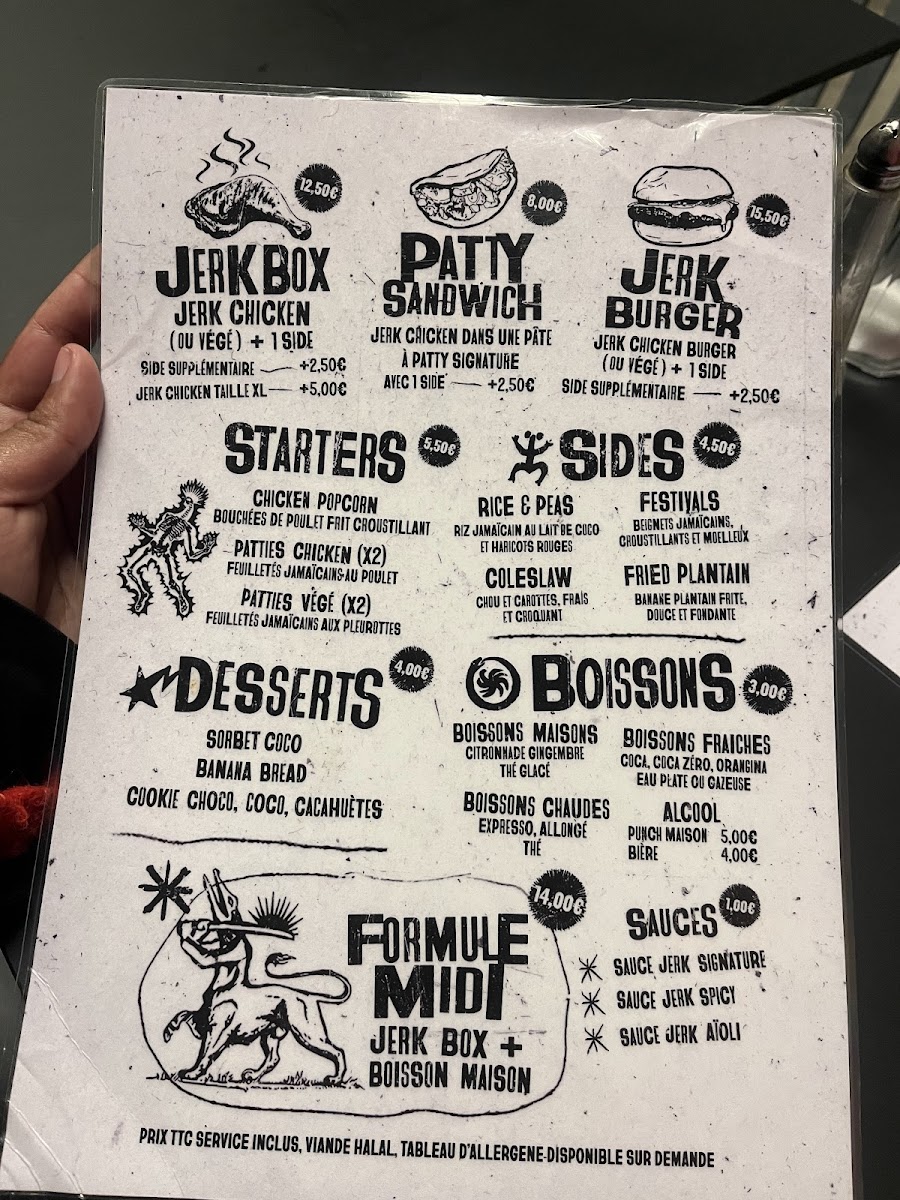 12,50€
JERK BOX
JERK CHICKEN
(OU VÉGÉ) + 1 SIDE
SIDE SUPPLÉMENTAIRE — +2,50€
JERK CHICKEN TAILLE XL — +5,00€
8,00€
PATTY
SANDWICH
JERK CHICKEN DANS UNE PÂTE
À PATTY SIGNATURE
AVEC 1 SIDE — +2,50€
15,50€
JERK
BURGER
JERK CHICKEN BURGER
(OU VÉGÉ) + 1 SIDE
SIDE SUPPLÉMENTAIRE — +2,50€
STARTERS 5,50€
CHICKEN POPCORN
BOUCHÉES DE POULET FRIT CROUSTILLANT
PATTIES CHICKEN (X2)
FEUILLETÉS JAMAÏCAINS AU POULET
PATTIES VÉGÉ (X2)
FEUILLETÉS JAMAÏCAINS AUX PLEUROTTES
SIDES 4,50€
RICE & PEAS
RIZ JAMAÏCAIN AU LAIT DE COCO
ET HARICOTS ROUGES
COLESLAW
CHOU ET CAROTTES, FRAIS
ET CROQUANT
FESTIVALS
BEIGNETS JAMAÏCAINS,
CROUSTILLANTS ET MOELLEUX
FRIED PLANTAIN
BANANE PLANTAIN FRITE,
DOUCE ET FONDANTE
DESSERTS 4,00€
SORBET COCO
BANANA BREAD
COOKIE CHOCO, COCO, CACAHUÈTES
BOISSONS 3,00€
BOISSONS MAISONS
CITRONNADE GINGEMBRE
THÉ GLACÉ
BOISSONS CHAUDES
EXPRESSO, ALLONGÉ
THÉ
BOISSONS FRAICHES
COCA, COCA ZÉRO, ORANGINA
EAU PLATE OU GAZEUSE
ALCOOL
PUNCH MAISON 5,00€
BIÈRE 4,00€
14,00€
FORMULE
MIDI
JERK BOX +
BOISSON MAISON
SAUCES 1,00€
SAUCE JERK SIGNATURE
SAUCE JERK SPICY
SAUCE JERK AÏOLI
PRIX TTC SERVICE INCLUS, VIANDE HALAL, TABLEAU D'ALLERGENE DISPONIBLE SUR DEMANDE